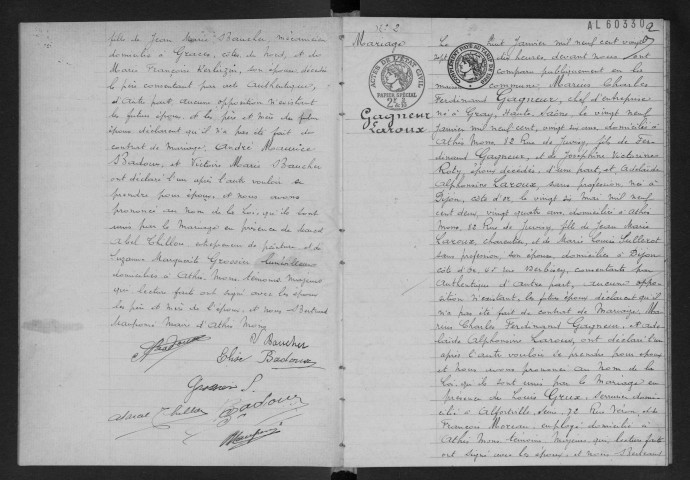 fille de Jean Marie Baucher, mécanicien
domicilié à Graces, côtes du Nord, et de
Marie Françoise Kerlizin, son épouse décédée
le père consentant par acte authentique,
d'autre part, aucune opposition n'existant
les futurs époux, et les père et mère du futur
époux déclarent qu'il n'a pas été fait de
contrat de mariage. André Maurice
Badoux, et Victoire Marie Baucher
ont déclaré l'un après l'autre vouloir se
prendre pour époux, et nous avons
prononcé au nom de la Loi, qu'ils sont
unis par le Mariage en présence de
Abel Thillou entrepreneur de peinture et de
Suzanne Marguerite Grossin
domiciliés à Athis Mons témoins majeurs
que lecture faite ont signé avec les époux
les père et mère de l'époux, et nous Bertrand
Maire d'Athis Mons
V Baucher
Elise Badoux
Grossin S.
Abel Thillou
Badoux
N° 2
Mariage
Gagneur
Laroux
ACTES DE L'ÉTAT CIVIL
PAPIER SPÉCIAL
AL 60330
2
Le huit Janvier mil neuf cent vingt
sept dix heures, devant nous ont
comparu publiquement en la
maison commune, Marius Charles
Ferdinand Gagneur, chef d'entreprise
né à Gray, Haute Saône, le vingt neuf
Janvier mil neuf cent, vingt six ans, domicilié à
Athis Mons 52 Rue de Juvisy, fils de Fer-
dinand Gagneur, et de Joséphine Victorine
Roty époux décédés, d'une part, et Adélaïde
Alphonsine Laroux, sans profession, née à
Dijon, côte d'or, le vingt six Mai mil neuf
cent deux, vingt quatre ans, domiciliée à Athis
Mons, 52 Rue de Juvisy, fille de Jean Marie
Laroux, charretier, et de Marie Louise Lullerot
sans profession, son épouse, domiciliés à Dijon
côte d'Or, 45 rue Berbisey, consentants par
Authentique d'autre part, aucune oppo-
sition n'existant, les futurs époux déclarent qu'il
n'a pas été fait de contrat de Mariage. Ma-
rius Charles Ferdinand Gagneur, et Adé-
laïde Alphonsine Laroux, ont déclaré l'un
après l'autre vouloir se prendre pour époux
et nous avons prononcé au nom de la
Loi, qu'ils sont unis par le Mariage en
présence de Louis Greux, serrurier domi-
cilié à Alfortville, Seine, 72 Rue Véron, et de
François Moreau, employé domicilié à
Athis Mons témoins majeurs qui, lecture faite
ont signé avec les époux, et nous Bertrand